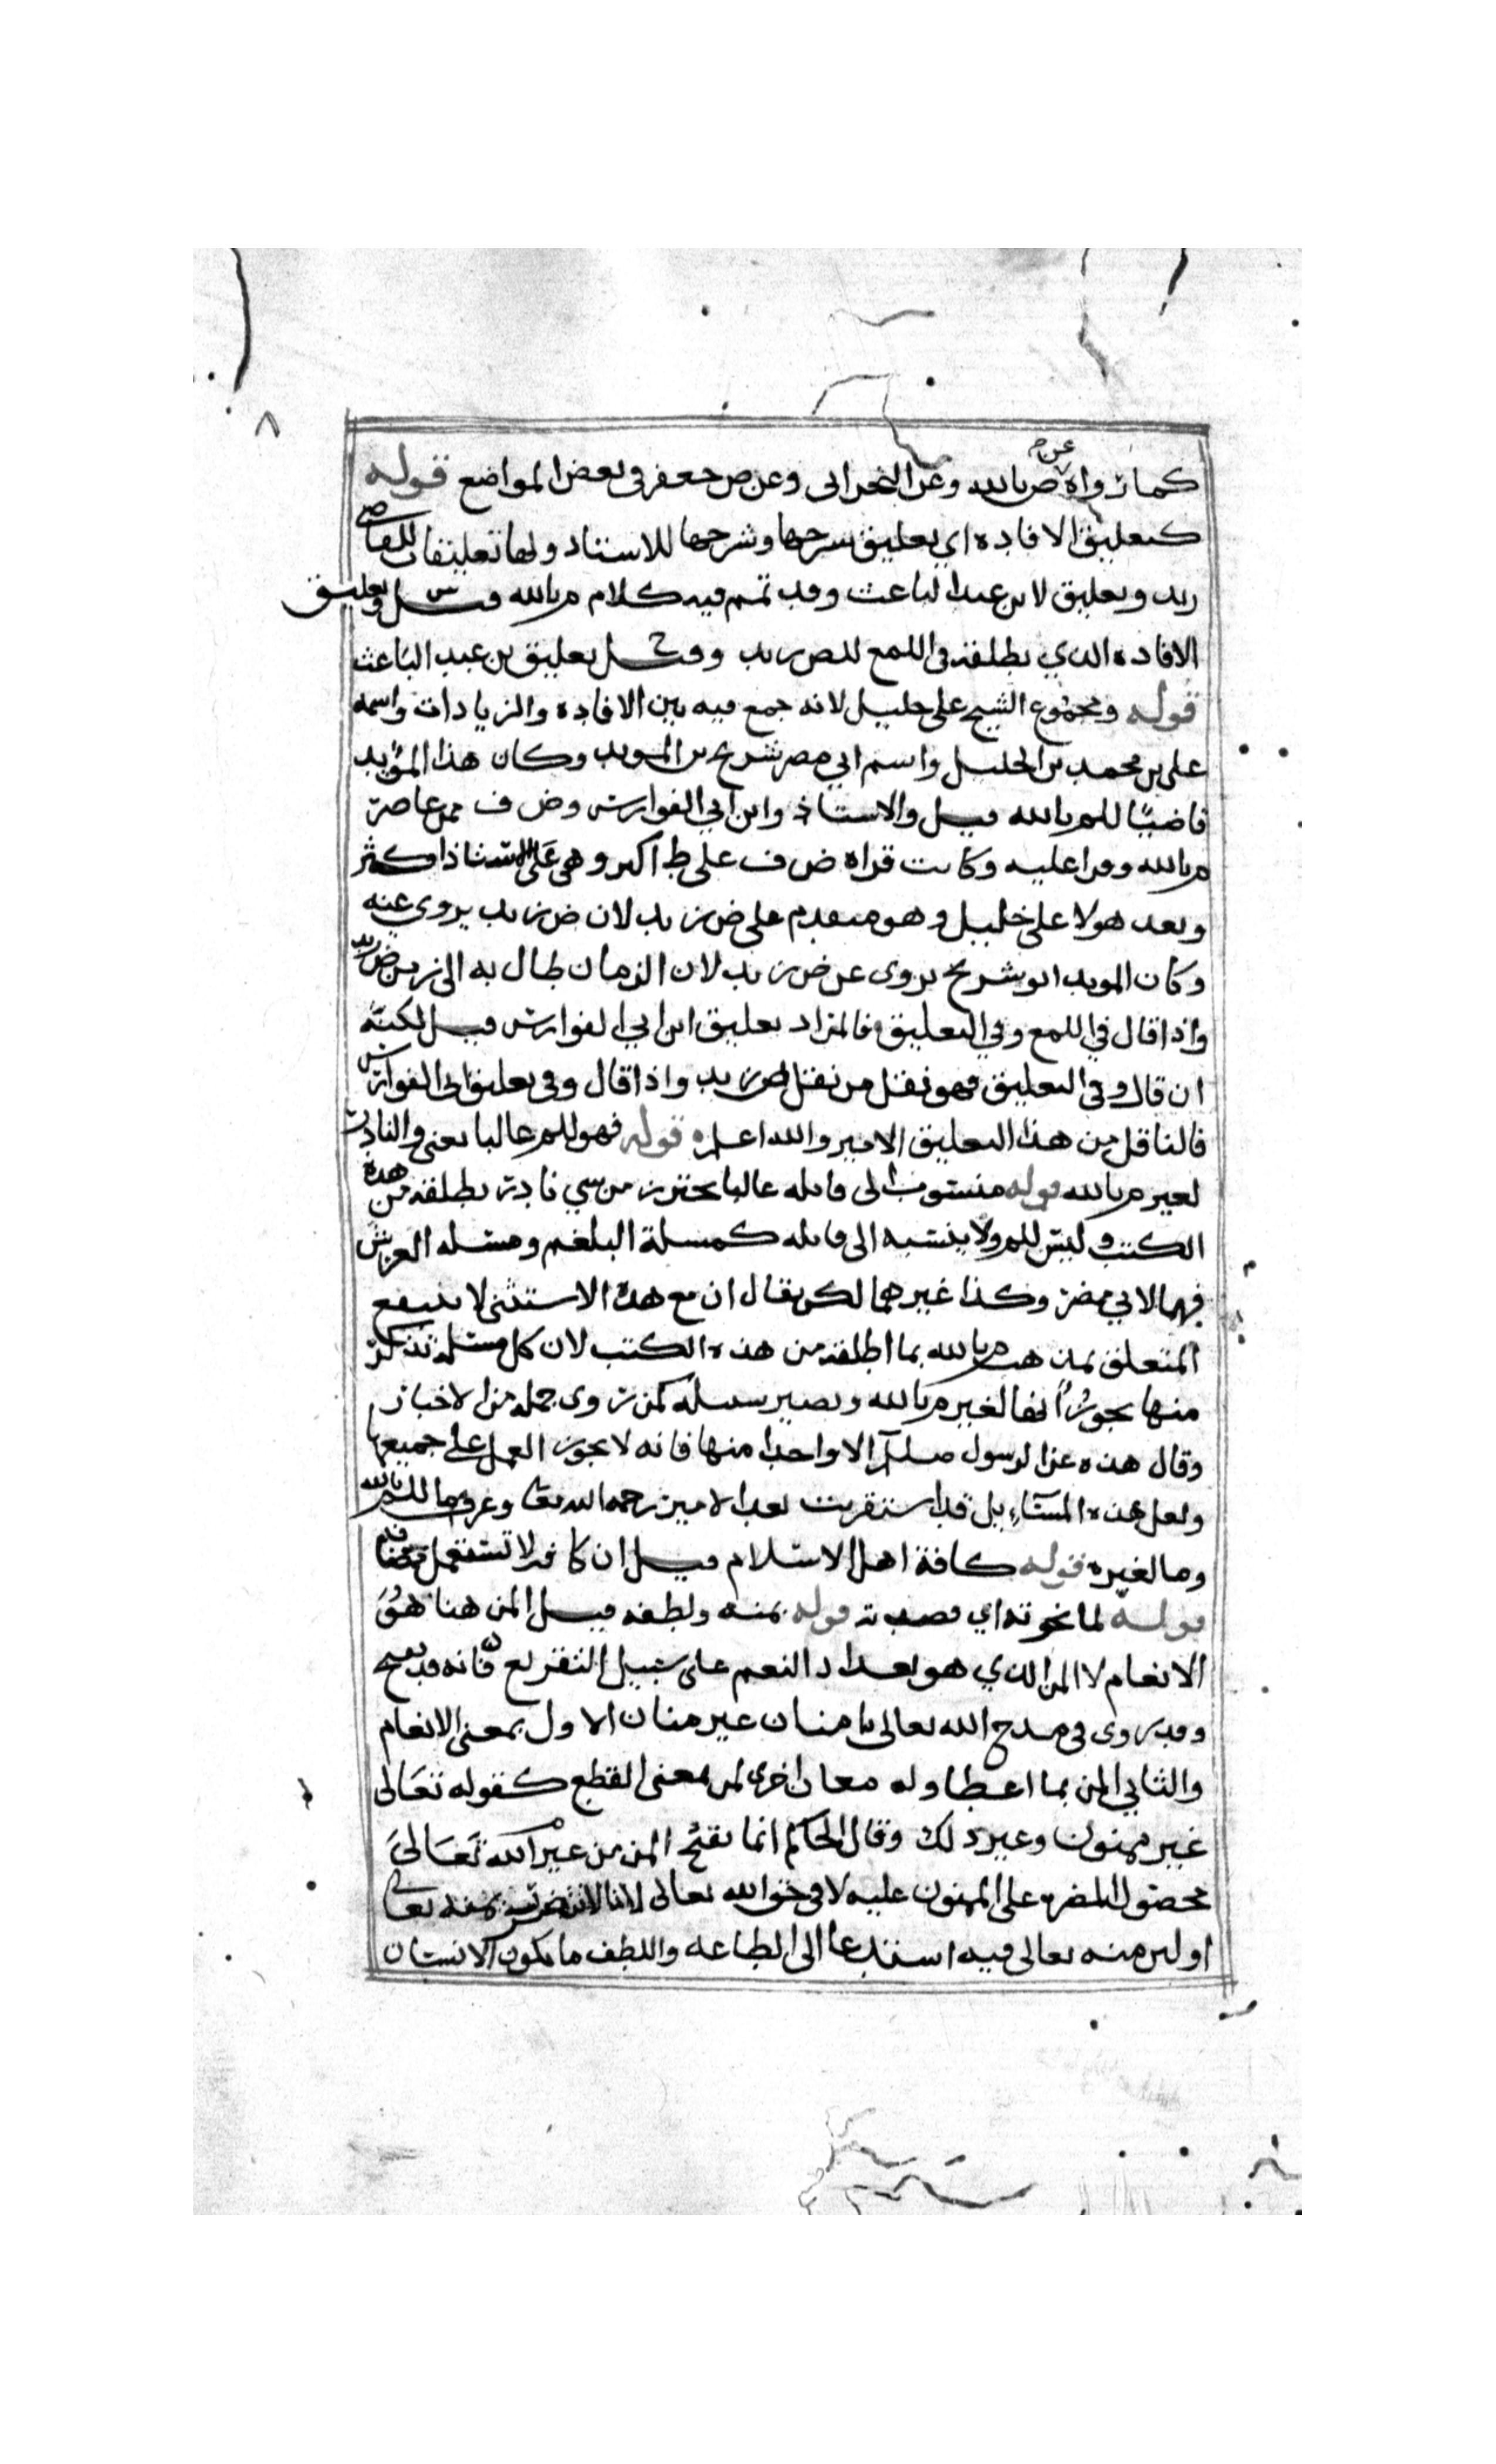 ٨
كما رواه عن ص بالله وعن النجراني وعن ص جعفر في بعض المواضع قوله
كتعليق الافاده اي تعليق شرحها وشرحها للاستاد ولها تعليقات للقاضي
زيد وتعليق لابن عبد الباعث وقد تمم فيه كلام م بالله قيل س وتعليق
الافاده الذي يطلقه في اللمع للص زيد وقيل ح تعليق بن عبد الباعث
قوله ومجموع الشيخ علي خليل لانه جمع فيه بين الافاده والزيادات واسمه
علي بن محمد بن الخليل واسم ابي مضر شريح بن المويد وكان هذا المؤيد
قاضيا للم بالله قيل والاستاذ وابن ابي الفوارس وض ف ممن عاصر
م بالله وقرا عليه وكانت قراه ض ف على ط اكبر وهي على الاستاذ اكثر
وبعد هولا علي خليل وهو متقدم على ض زيد لان ض زيد يروى عنه
وكان المويد ابو شريح يروى عن ض زيد لان الزمان طال به الى زمن ض زيد
واذا قال في اللمع وفي التعليق فالمراد تعليق ابن ابي الفوارس قيل لكنه
ان قال وفي التعليق فهو نقل من نقل ض زيد واذا قال وفي تعليق ابي الفوارس
فالناقل من هذا التعليق الامير والله اعلم قوله فهو للم غالبا يعني والنادر
لغير م بالله قوله منسوب الى قايله غالبا يحترز من شي نادر يطلقه من هذه
الكتب وليس للم ولا ينسبه الى قايله كمسلة البلغم ومسئله العربش
فهما لابي مضر وكذا غيرهما لكن يقال ان مع هذه الاستثنى لا ينتفع
المتعلق بمذهب م بالله بما اطلقه من هذه الكتب لان كل مسئلة تذكر
منها يجوز انها لغير م بالله ويصير سبيله كمن روى جملة من الاخبار
وقال هذه عن الرسول صلم الا واحدا منها فانه لا يجوز العمل على جميعها
ولعل هذه المسآء يل قد استقريت بعد الامير رحمه الله تعا وعرف ما للم بالله
وما لغيره قوله كافة اهل الاسلام قيل ان كافه لا تستعمل مضافه
قوله لما نحوته اي قصدته قوله بمنه ولطفه قيل المن هنا هو
الانعام لا المن الذي هو تعداد النعم على سبيل التقريع فانه قد يقبح
وقد روى في مدح الله تعالى يا منان غير منان الاول بمعنى الانعام
والثاني المن بما اعطا وله معان اخرى لمن بمعنى القطع كقوله تعالى
غير ممنون وغير ذلك وقال الحاكم انما يقبح المن من غير الله تعالى
لحصول المضره على الممنون عليه لا في حق الله تعالى لانا لا نتضرر بمنه تعالى
او لان منه تعالى فيه استدعا الى الطاعه واللطف ما يكون الانسان